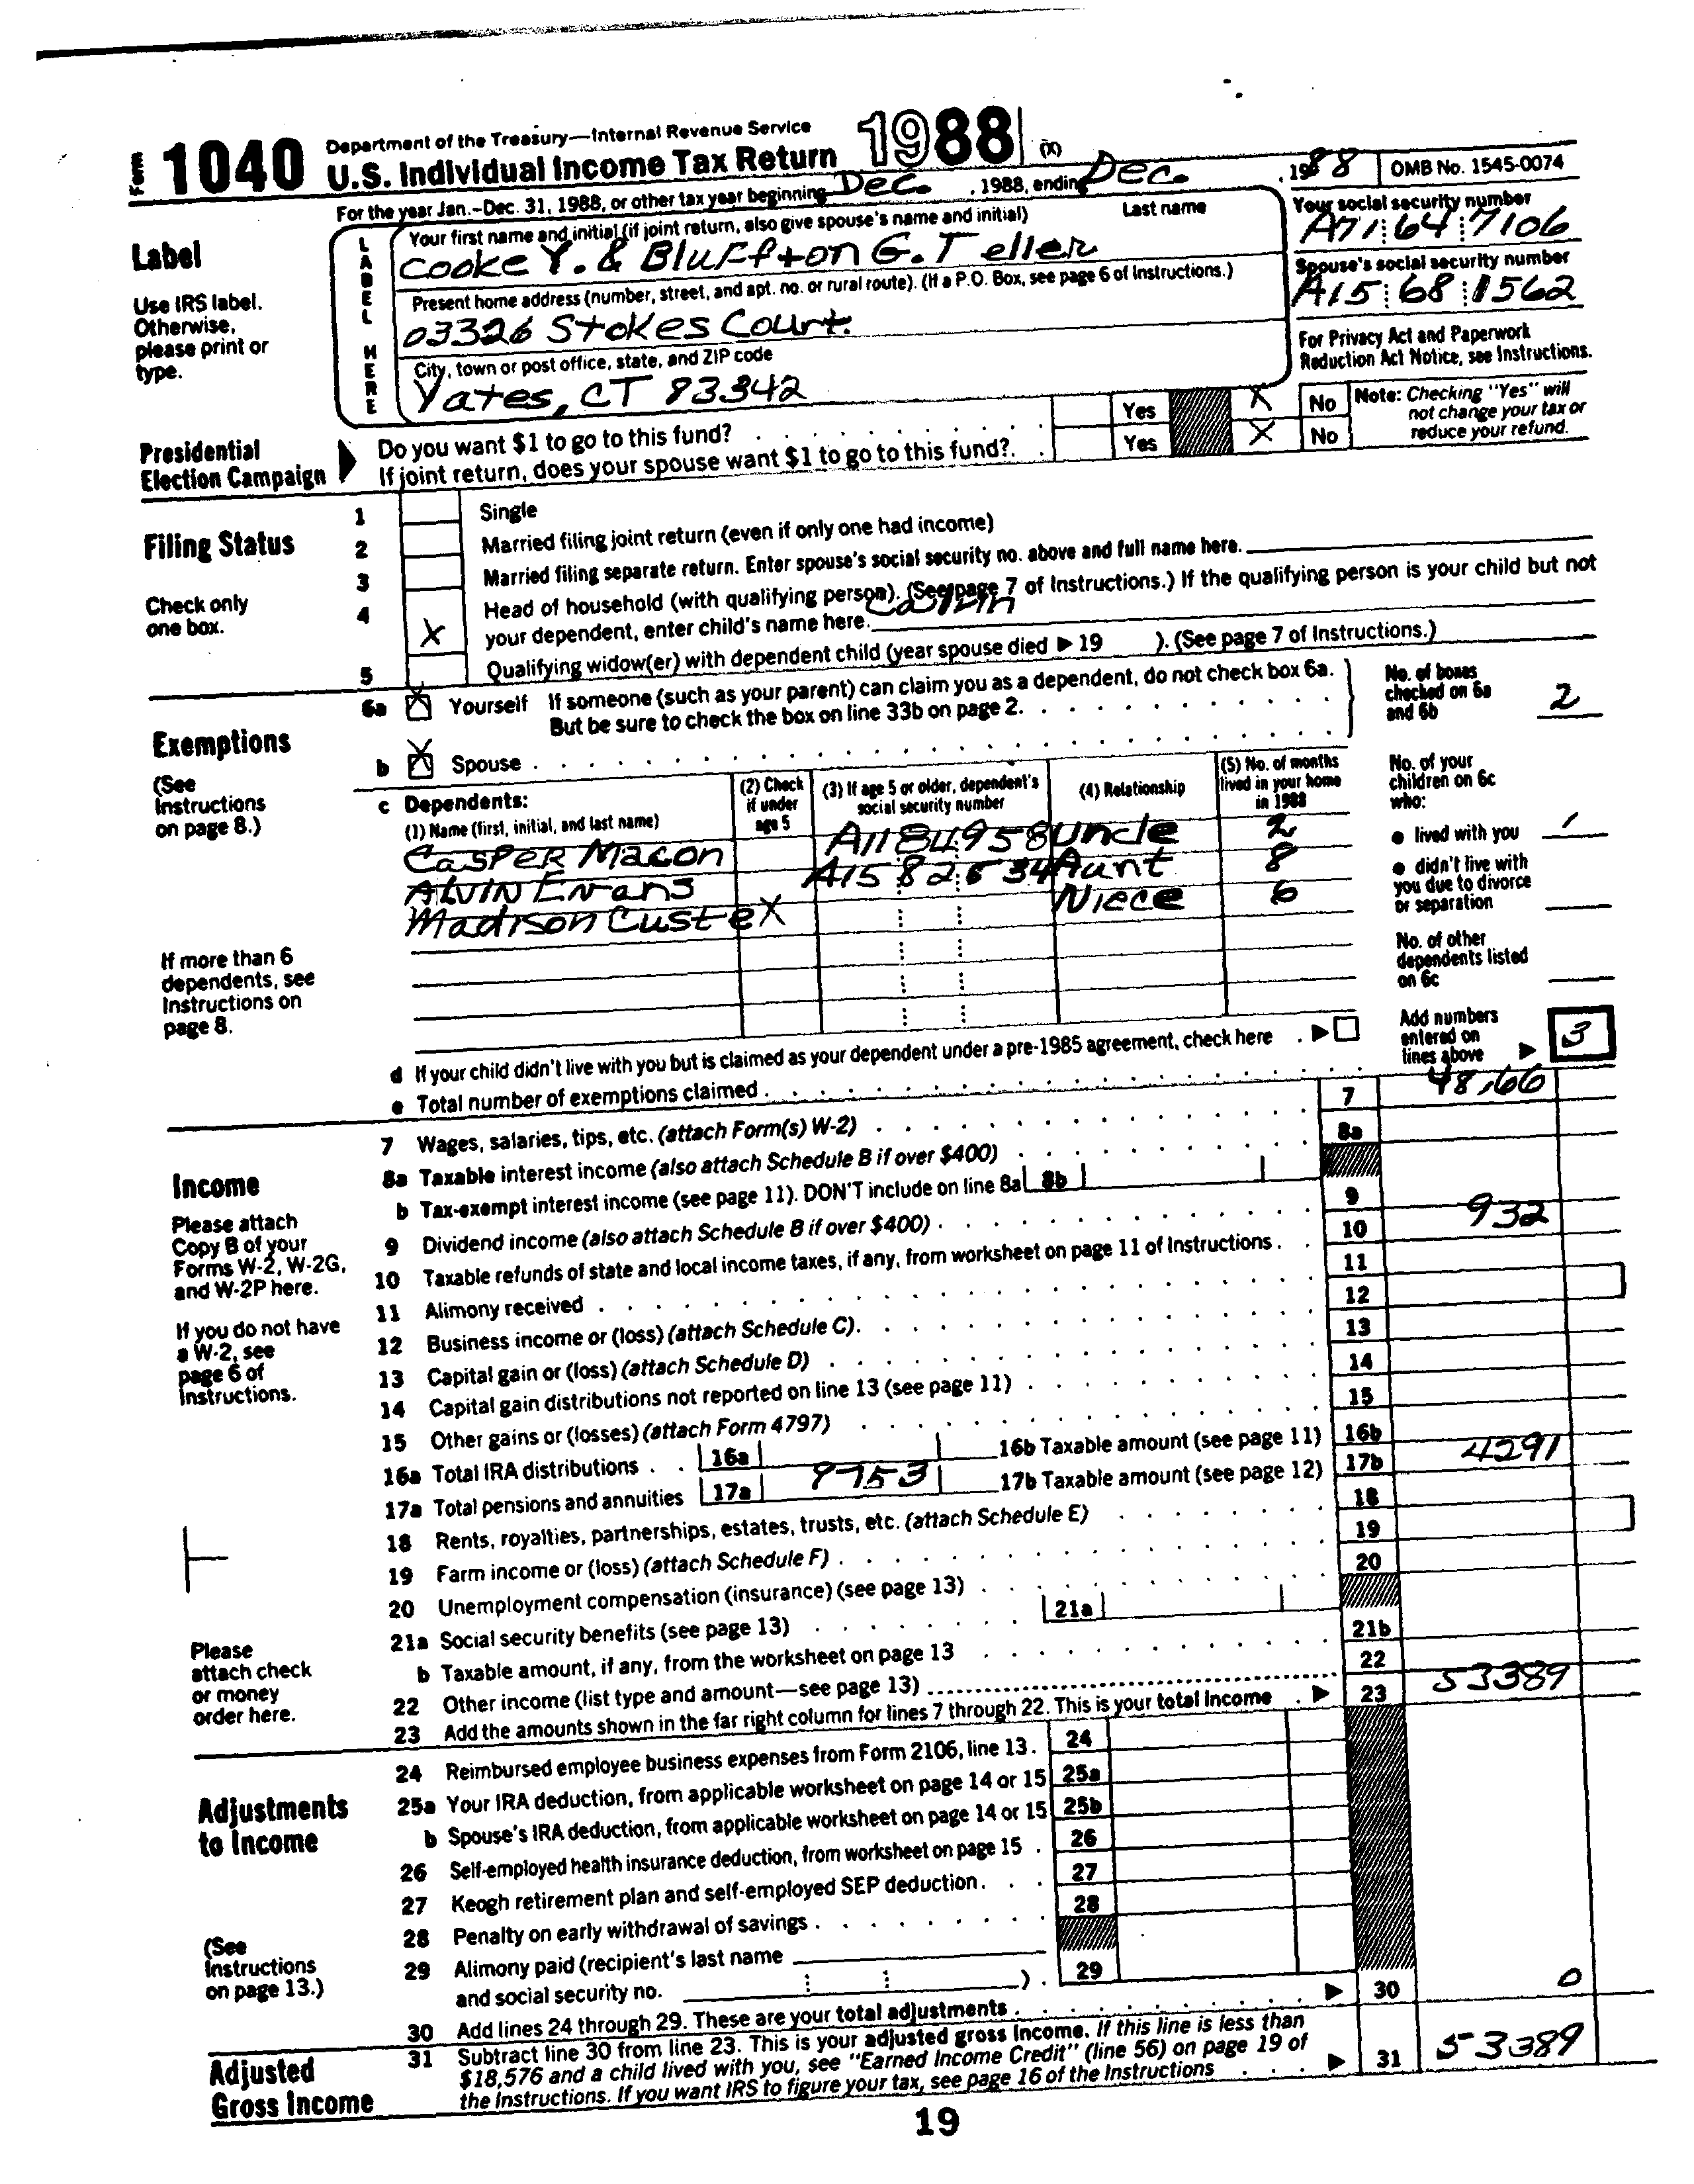 Form 1040 Department of the Treasury—Internal Revenue Service
U.S. Individual Income Tax Return 1988 (X)
For the year Jan.–Dec. 31, 1988, or other tax year beginning Dec. , 1988, ending Dec. , 1988 OMB No. 1545-0074
Label
Use IRS label.
Otherwise,
please print or
type.
LABEL HERE
Your first name and initial (if joint return, also give spouse's name and initial) Last name
Cooke Y. & Bluffton G. Teller
Your social security number
A71 64 7106
Present home address (number, street, and apt. no. or rural route). (If a P.O. Box, see page 6 of Instructions.)
03326 Stokes Court.
Spouse's social security number
A15 68 1562
City, town or post office, state, and ZIP code
Yates, CT 83342
For Privacy Act and Paperwork
Reduction Act Notice, see Instructions.
Presidential
Election Campaign
Do you want $1 to go to this fund? Yes X No
If joint return, does your spouse want $1 to go to this fund? Yes X No
Note: Checking "Yes" will
not change your tax or
reduce your refund.
Filing Status
Check only
one box.
1 Single
2 Married filing joint return (even if only one had income)
3 Married filing separate return. Enter spouse's social security no. above and full name here.
4 X Head of household (with qualifying person). (See page 7 of Instructions.) If the qualifying person is your child but not
your dependent, enter child's name here.
5 Qualifying widow(er) with dependent child (year spouse died ▶ 19 ). (See page 7 of Instructions.)
Exemptions
(See
Instructions
on page 8.)
6a X Yourself If someone (such as your parent) can claim you as a dependent, do not check box 6a.
But be sure to check the box on line 33b on page 2.
b X Spouse
No. of boxes
checked on 6a
and 6b 2
c Dependents:
(1) Name (first, initial, and last name)
(2) Check
if under
age 5
(3) If age 5 or older, dependent's
social security number
(4) Relationship
(5) No. of months
lived in your home
in 1988
Casper Macon A11 84 958 Uncle 2
Alvin Evans A15 82 534 Aunt 8
Madison Custe X Niece 6
No. of your
children on 6c
who:
● lived with you 1
● didn't live with
you due to divorce
or separation
No. of other
dependents listed
on 6c
If more than 6
dependents, see
Instructions on
page 8.
Add numbers
entered on
lines above ▶ 3
d If your child didn't live with you but is claimed as your dependent under a pre-1985 agreement, check here ▶
e Total number of exemptions claimed
Income
Please attach
Copy B of your
Forms W-2, W-2G,
and W-2P here.
If you do not have
a W-2, see
page 6 of
Instructions.
Please
attach check
or money
order here.
7 Wages, salaries, tips, etc. (attach Form(s) W-2) 7 48,166
8a Taxable interest income (also attach Schedule B if over $400) 8a
b Tax-exempt interest income (see page 11). DON'T include on line 8a 8b
9 Dividend income (also attach Schedule B if over $400) 9
10 Taxable refunds of state and local income taxes, if any, from worksheet on page 11 of Instructions 10 932
11 Alimony received 11
12 Business income or (loss) (attach Schedule C) 12
13 Capital gain or (loss) (attach Schedule D) 13
14 Capital gain distributions not reported on line 13 (see page 11) 14
15 Other gains or (losses) (attach Form 4797) 15
16a Total IRA distributions 16a 16b Taxable amount (see page 11) 16b
17a Total pensions and annuities 17a 9753 17b Taxable amount (see page 12) 17b 4291
18 Rents, royalties, partnerships, estates, trusts, etc. (attach Schedule E) 18
19 Farm income or (loss) (attach Schedule F) 19
20 Unemployment compensation (insurance) (see page 13) 20
21a Social security benefits (see page 13) 21a
b Taxable amount, if any, from the worksheet on page 13 21b
22 Other income (list type and amount—see page 13) 22
23 Add the amounts shown in the far right column for lines 7 through 22. This is your total income ▶ 23 53389
Adjustments
to Income
(See
Instructions
on page 13.)
24 Reimbursed employee business expenses from Form 2106, line 13. 24
25a Your IRA deduction, from applicable worksheet on page 14 or 15 25a
b Spouse's IRA deduction, from applicable worksheet on page 14 or 15 25b
26 Self-employed health insurance deduction, from worksheet on page 15 26
27 Keogh retirement plan and self-employed SEP deduction 27
28 Penalty on early withdrawal of savings 28
29 Alimony paid (recipient's last name
and social security no. ) 29
30 Add lines 24 through 29. These are your total adjustments ▶ 30 0
Adjusted
Gross Income
31 Subtract line 30 from line 23. This is your adjusted gross income. If this line is less than
$18,576 and a child lived with you, see "Earned Income Credit" (line 56) on page 19 of
the Instructions. If you want IRS to figure your tax, see page 16 of the Instructions ▶ 31 53389
19